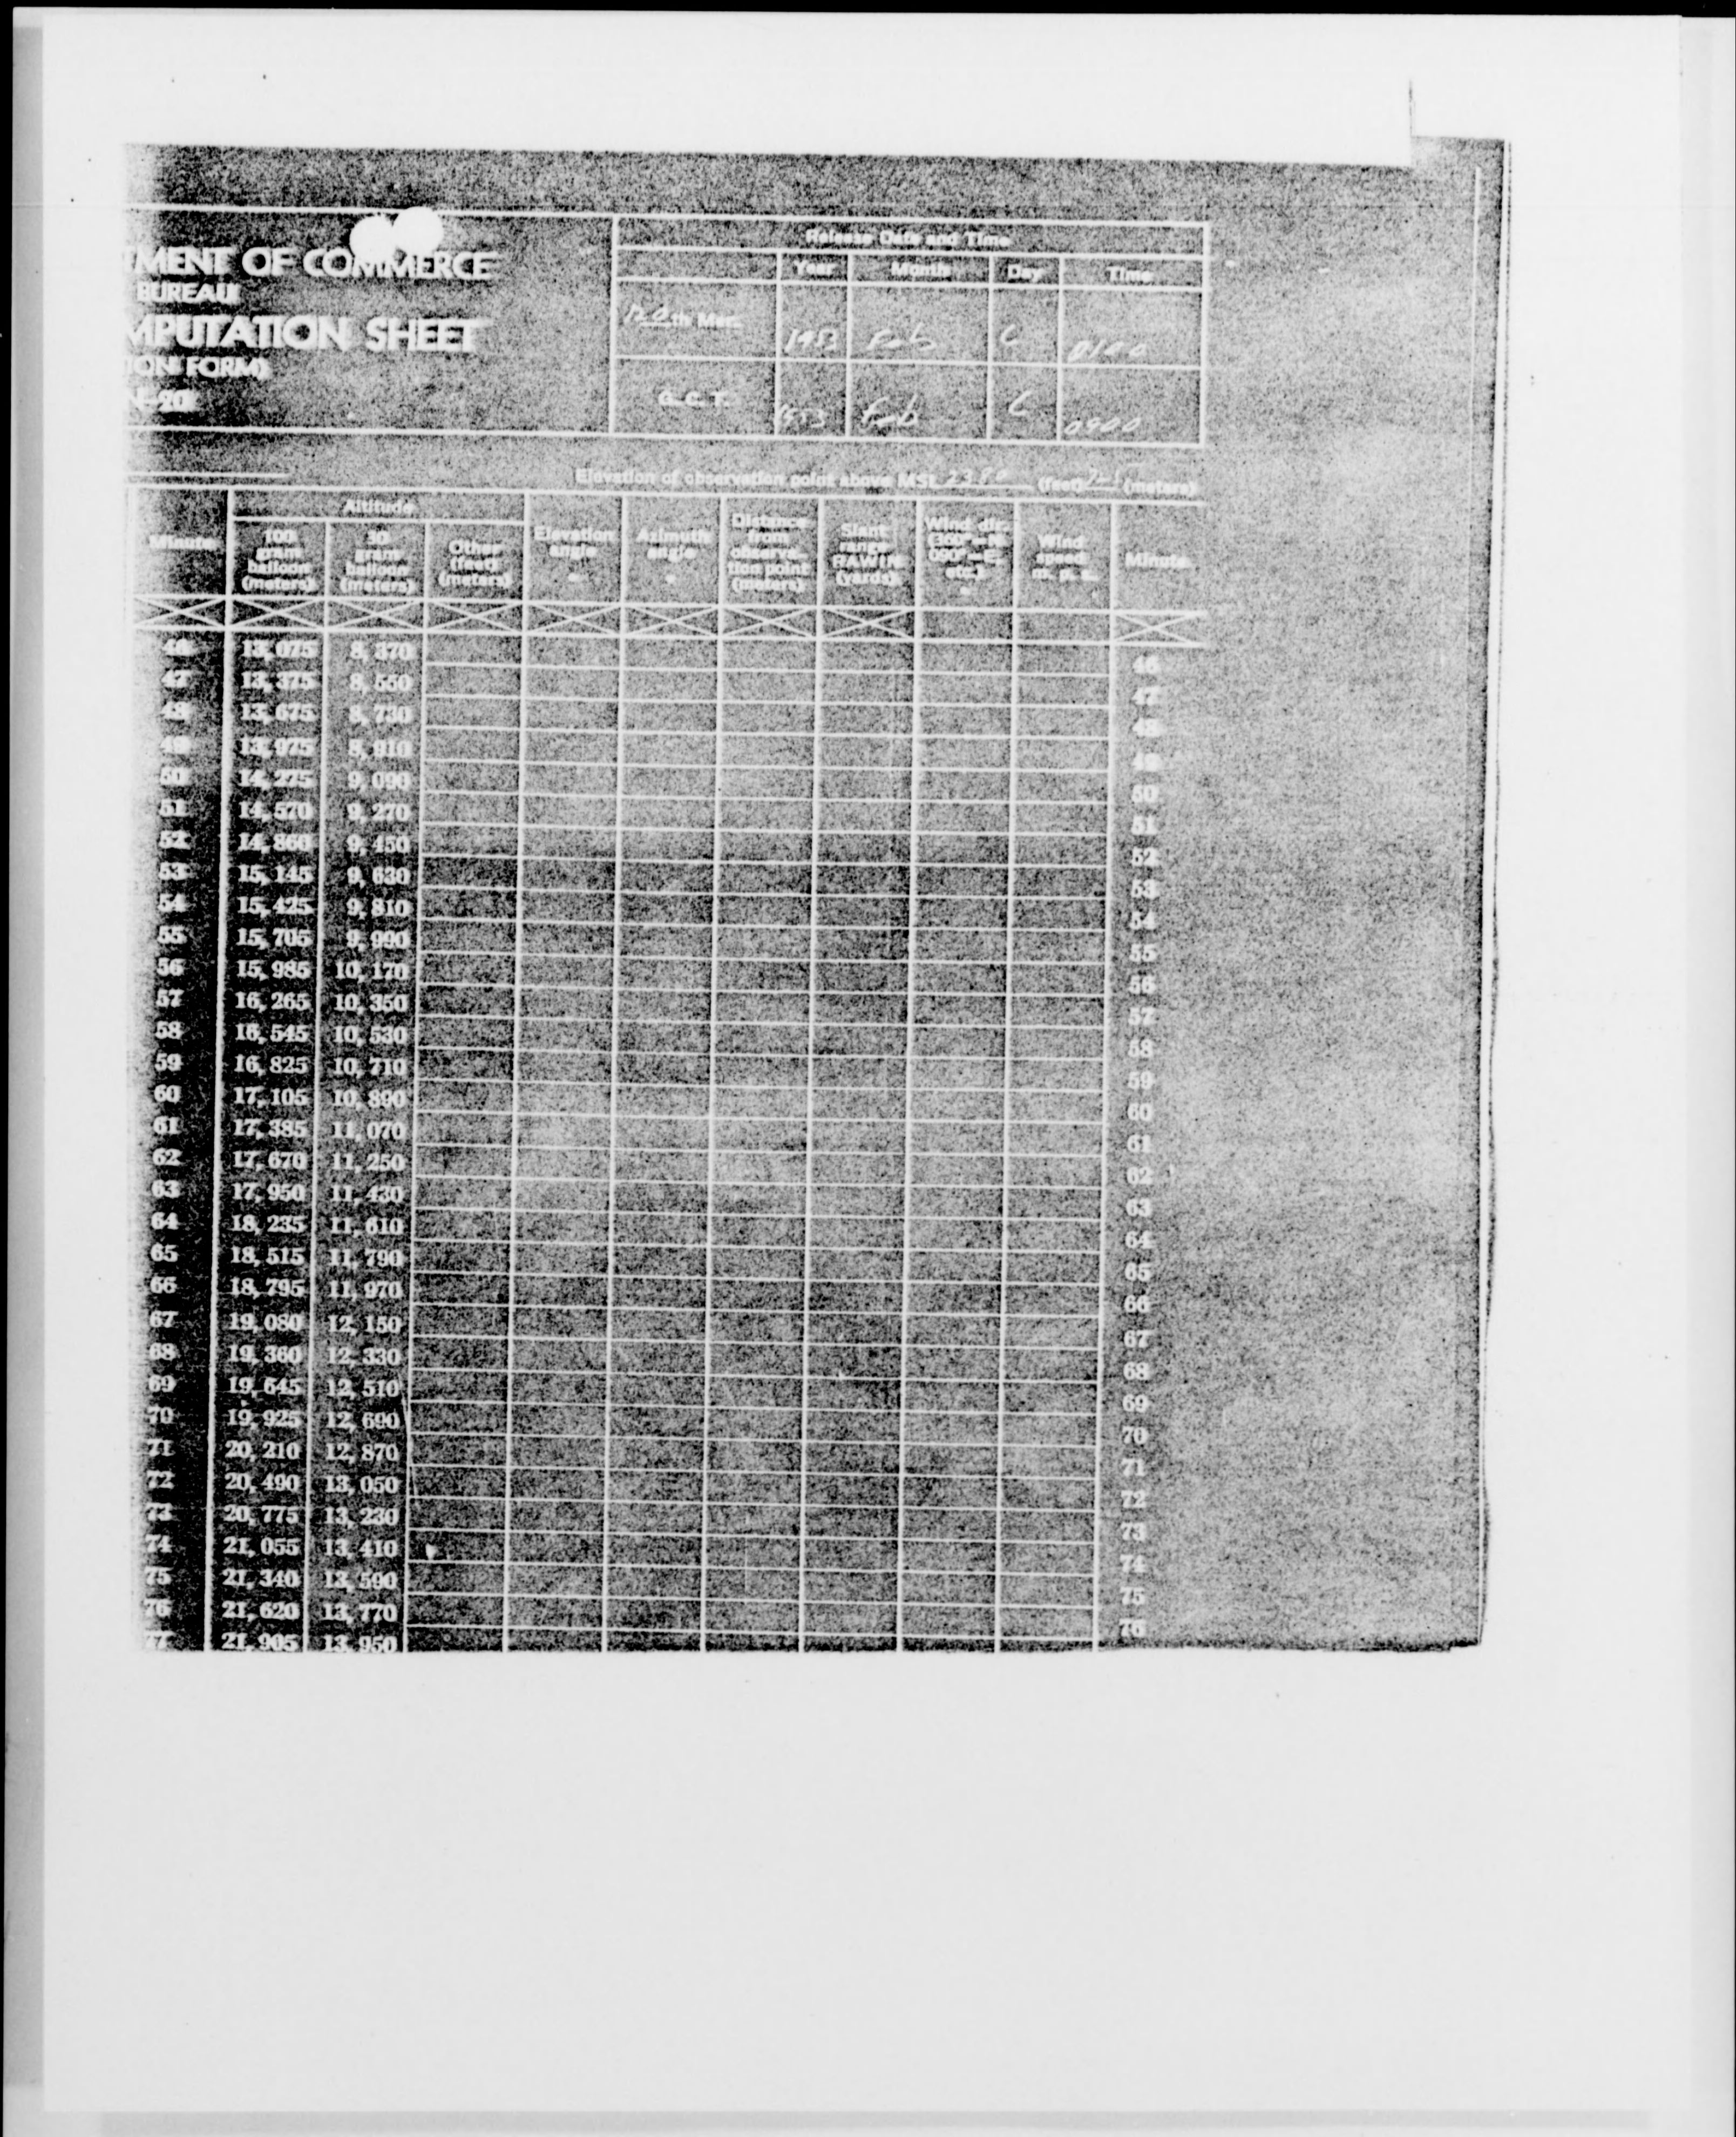 TMENT OF COMMERCE
BUREAU
MPUTATION SHEET
ION FORM)
-20
Release Date and Time
Year Month Day Time
120th Mer. 1953 Feb 0100
G. C. T. 1953 Feb 0900
Elevation of observation point above MSL 2380 (feet) (meters)
Altitude
Minute
100 gram balloon (meters)
30 gram balloon (meters)
Other (feet) (meters)
Elevation angle °
Azimuth angle °
Distance from observation point (meters)
Slant range RAWIN (yards)
Wind dir. (360°=N. 090°=E. etc.) °
Wind speed m. p. s.
Minute
46 13,075 8,370 46
47 13,375 8,550 47
48 13,675 8,730 48
49 13,975 8,910 49
50 14,275 9,090 50
51 14,570 9,270 51
52 14,860 9,450 52
53 15,145 9,630 53
54 15,425 9,810 54
55 15,705 9,990 55
56 15,985 10,170 56
57 16,265 10,350 57
58 16,545 10,530 58
59 16,825 10,710 59
60 17,105 10,890 60
61 17,385 11,070 61
62 17,670 11,250 62
63 17,950 11,430 63
64 18,235 11,610 64
65 18,515 11,790 65
66 18,795 11,970 66
67 19,080 12,150 67
68 19,360 12,330 68
69 19,645 12,510 69
70 19,925 12,690 70
71 20,210 12,870 71
72 20,490 13,050 72
73 20,775 13,230 73
74 21,055 13,410 74
75 21,340 13,590 75
76 21,620 13,770 76
77 21,905 13,950